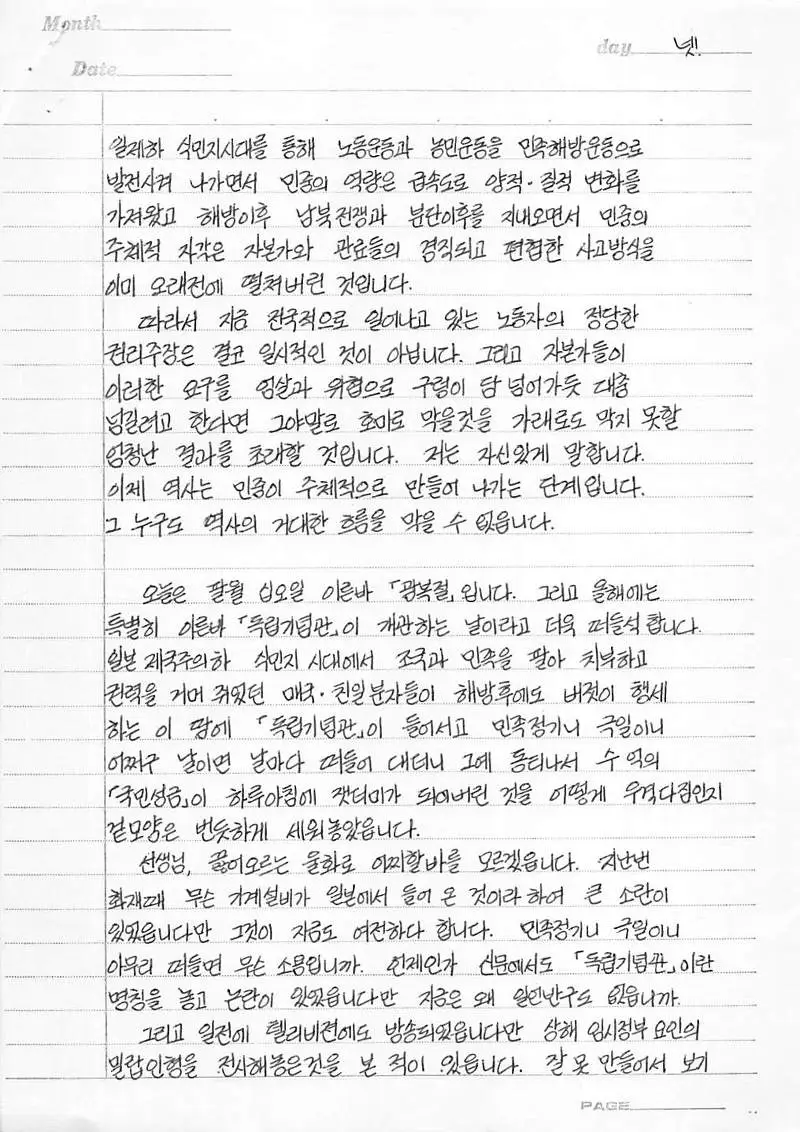 Month
day 넷!
Date
일제하 식민지시대를 통해 노동운동과 농민운동을 민족해방운동으로
발전시켜 나가면서 민중의 역량은 급속도로 양적·질적 변화를
가져왔고 해방이후 남북전쟁과 분단이후를 지내오면서 민중의
주체적 자각은 자본가와 관료들의 경직되고 편협한 사고방식을
이미 오래전에 떨쳐버린 것입니다.
따라서 지금 전국적으로 일어나고 있는 노동자의 정당한
권리주장은 결코 일시적인 것이 아닙니다. 그리고 자본가들이
이러한 요구를 엄살과 위협으로 구렁이 담 넘어가듯 대충
넘길려고 한다면 그야말로 호미로 막을것을 가래로도 막지 못할
엄청난 결과를 초래할 것입니다. 저는 자신있게 말합니다.
이제 역사는 민중이 주체적으로 만들어 나가는 단계입니다.
그 누구도 역사의 거대한 흐름을 막을 수 없읍니다.
오늘은 팔월 십오일 이른바 「광복절」입니다. 그리고 올해에는
특별히 이른바 「독립기념관」이 개관하는 날이라고 더욱 떠들석 합니다.
일본 제국주의하 식민지 시대에서 조국과 민족을 팔아 치부하고
권력을 거머 쥐었던 매국·친일분자들이 해방후에도 버젓이 행세
하는 이 땅에 「독립기념관」이 들어서고 민족정기니 극일이니
어쩌구 날이면 날마다 떠들어 대더니 그에 동티나서 수억의
「국민성금」이 하루아침에 잿더미가 되어버린 것을 어떻게 우격다짐인지
겉모양은 번듯하게 세워놓았읍니다.
선생님, 끓어오르는 울화로 어찌할바를 모르겠읍니다. 지난번
화재때 무슨 기계설비가 일본에서 들어 온 것이라 하여 큰 소란이
있었읍니다만 그것이 지금도 여전하다 합니다. 민족정기니 극일이니
아무리 떠들면 무슨 소용입니까. 언제인가 신문에서도 「독립기념관」이란
명칭을 놓고 논란이 있었읍니다만 지금은 왜 일언반구도 없읍니까.
그리고 일전에 텔리비젼에도 방송되었읍니다만 상해 임시정부 요인의
밀랍인형을 전시해놓은것을 본 적이 있읍니다. 잘 못 만들어서 보기
PAGE